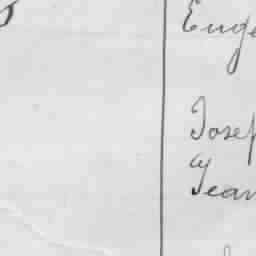 Euge
Josep
Jean